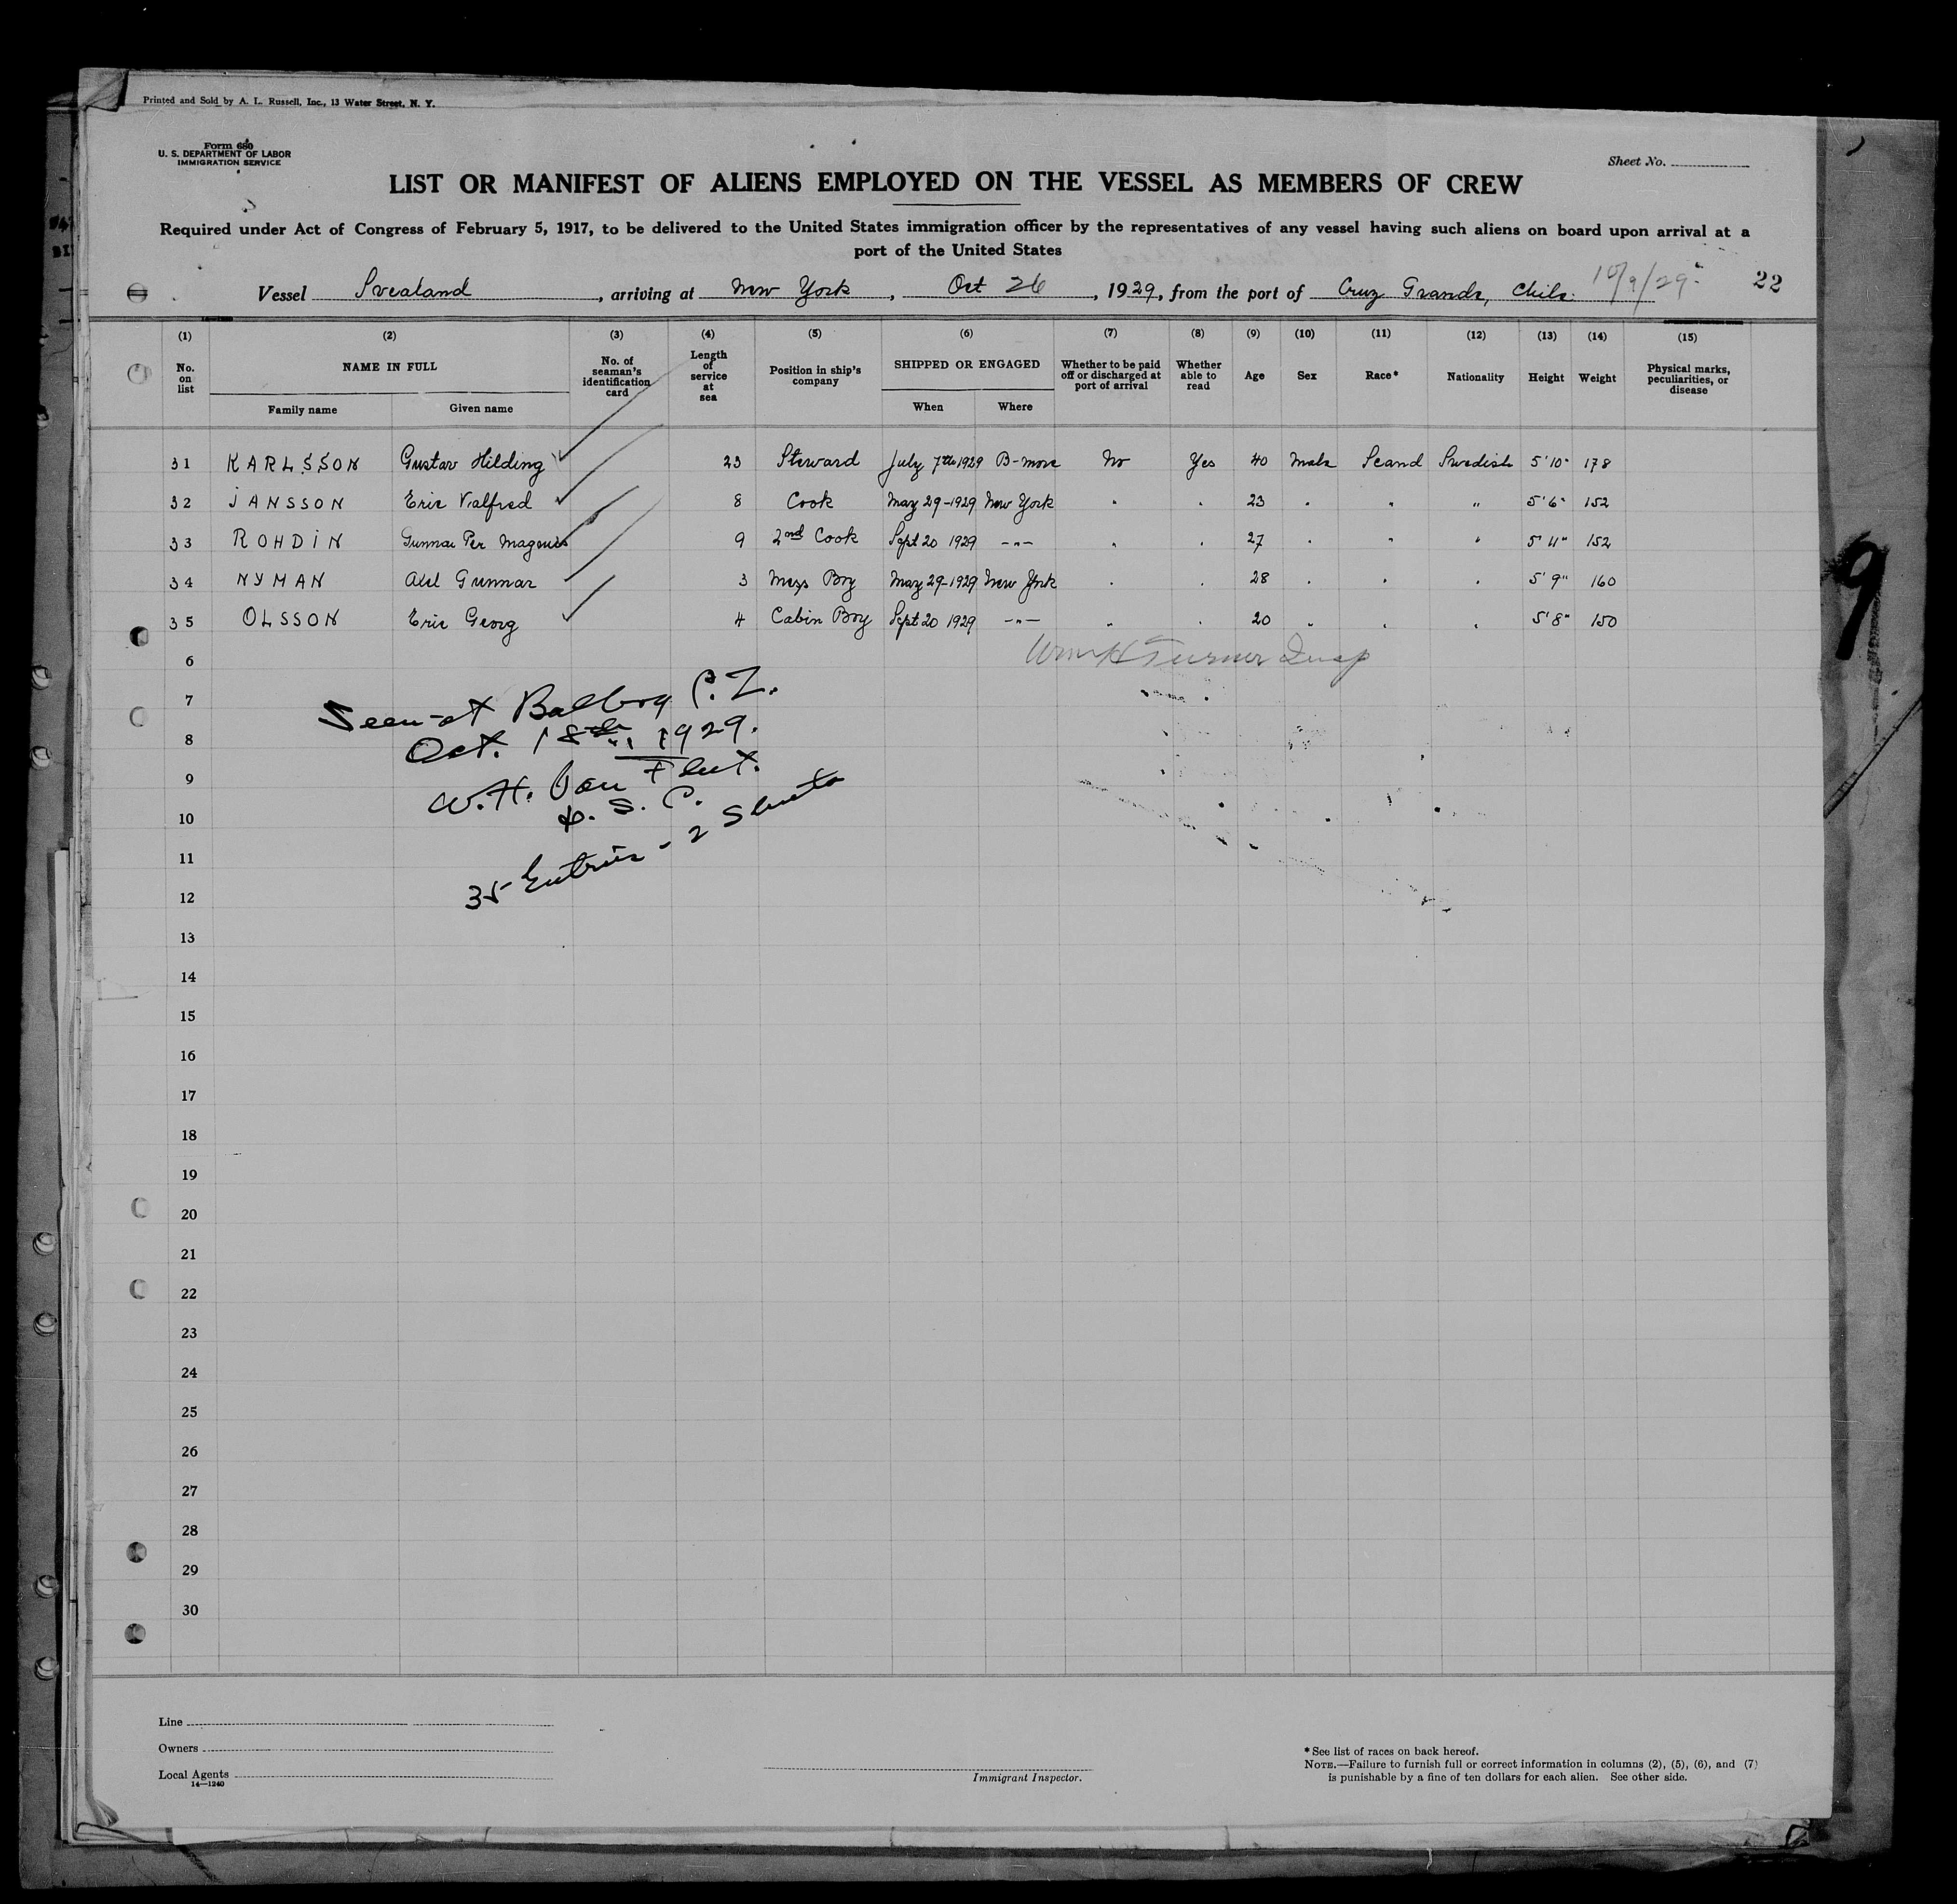 Printed and Sold by A. L. Russell, Inc., 13 Water Street, N. Y.
Form 680
U. S. DEPARTMENT OF LABOR
IMMIGRATION SERVICE
Sheet No.
LIST OR MANIFEST OF ALIENS EMPLOYED ON THE VESSEL AS MEMBERS OF CREW
Required under Act of Congress of February 5, 1917, to be delivered to the United States immigration officer by the representatives of any vessel having such aliens on board upon arrival at a
port of the United States
Vessel Svealand, arriving at New York, Oct 26, 1929, from the port of Cruz Grande, Chile. 10/9/29. 22
(1) (2) (3) (4) (5) (6) (7) (8) (9) (10) (11) (12) (13) (14) (15)
No. on list NAME IN FULL Family name Given name No. of seaman's identification card Length of service at sea Position in ship's company SHIPPED OR ENGAGED When Where Whether to be paid off or discharged at port of arrival Whether able to read Age Sex Race* Nationality Height Weight Physical marks, peculiarities, or disease
31 KARLSSON Gustav Hilding 23 Steward July 7th 1929 B-more No Yes 40 Male Scand Swedish 5'10" 178
32 JANSSON Eric Valfred 8 Cook May 29-1929 New York " " 23 " " " 5'6" 152
33 ROHDIN Gunnar Per Magnus 9 2nd Cook Sept 20 1929 -"- " " 27 " " " 5'11" 152
34 NYMAN Axel Gunnar 3 Mess Boy May 29-1929 New York " " 28 " " 5'9" 160
35 OLSSON Eric Georg 4 Cabin Boy Sept 20 1929 -"- " " 20 " " " 5'8" 150
6 Wm H Turner Insp
7 Seen at Balboa C.Z.
8 Oct. 18th, 1929.
9 W.H. Van Fleet.
10
35 Entries - 2 Sheets
11
12
13
14
15
16
17
18
19
20
21
22
23
24
25
26
27
28
29
30
Line
Owners
Local Agents
14—1240
Immigrant Inspector.
* See list of races on back hereof.
NOTE.—Failure to furnish full or correct information in columns (2), (5), (6), and (7)
is punishable by a fine of ten dollars for each alien. See other side.
9